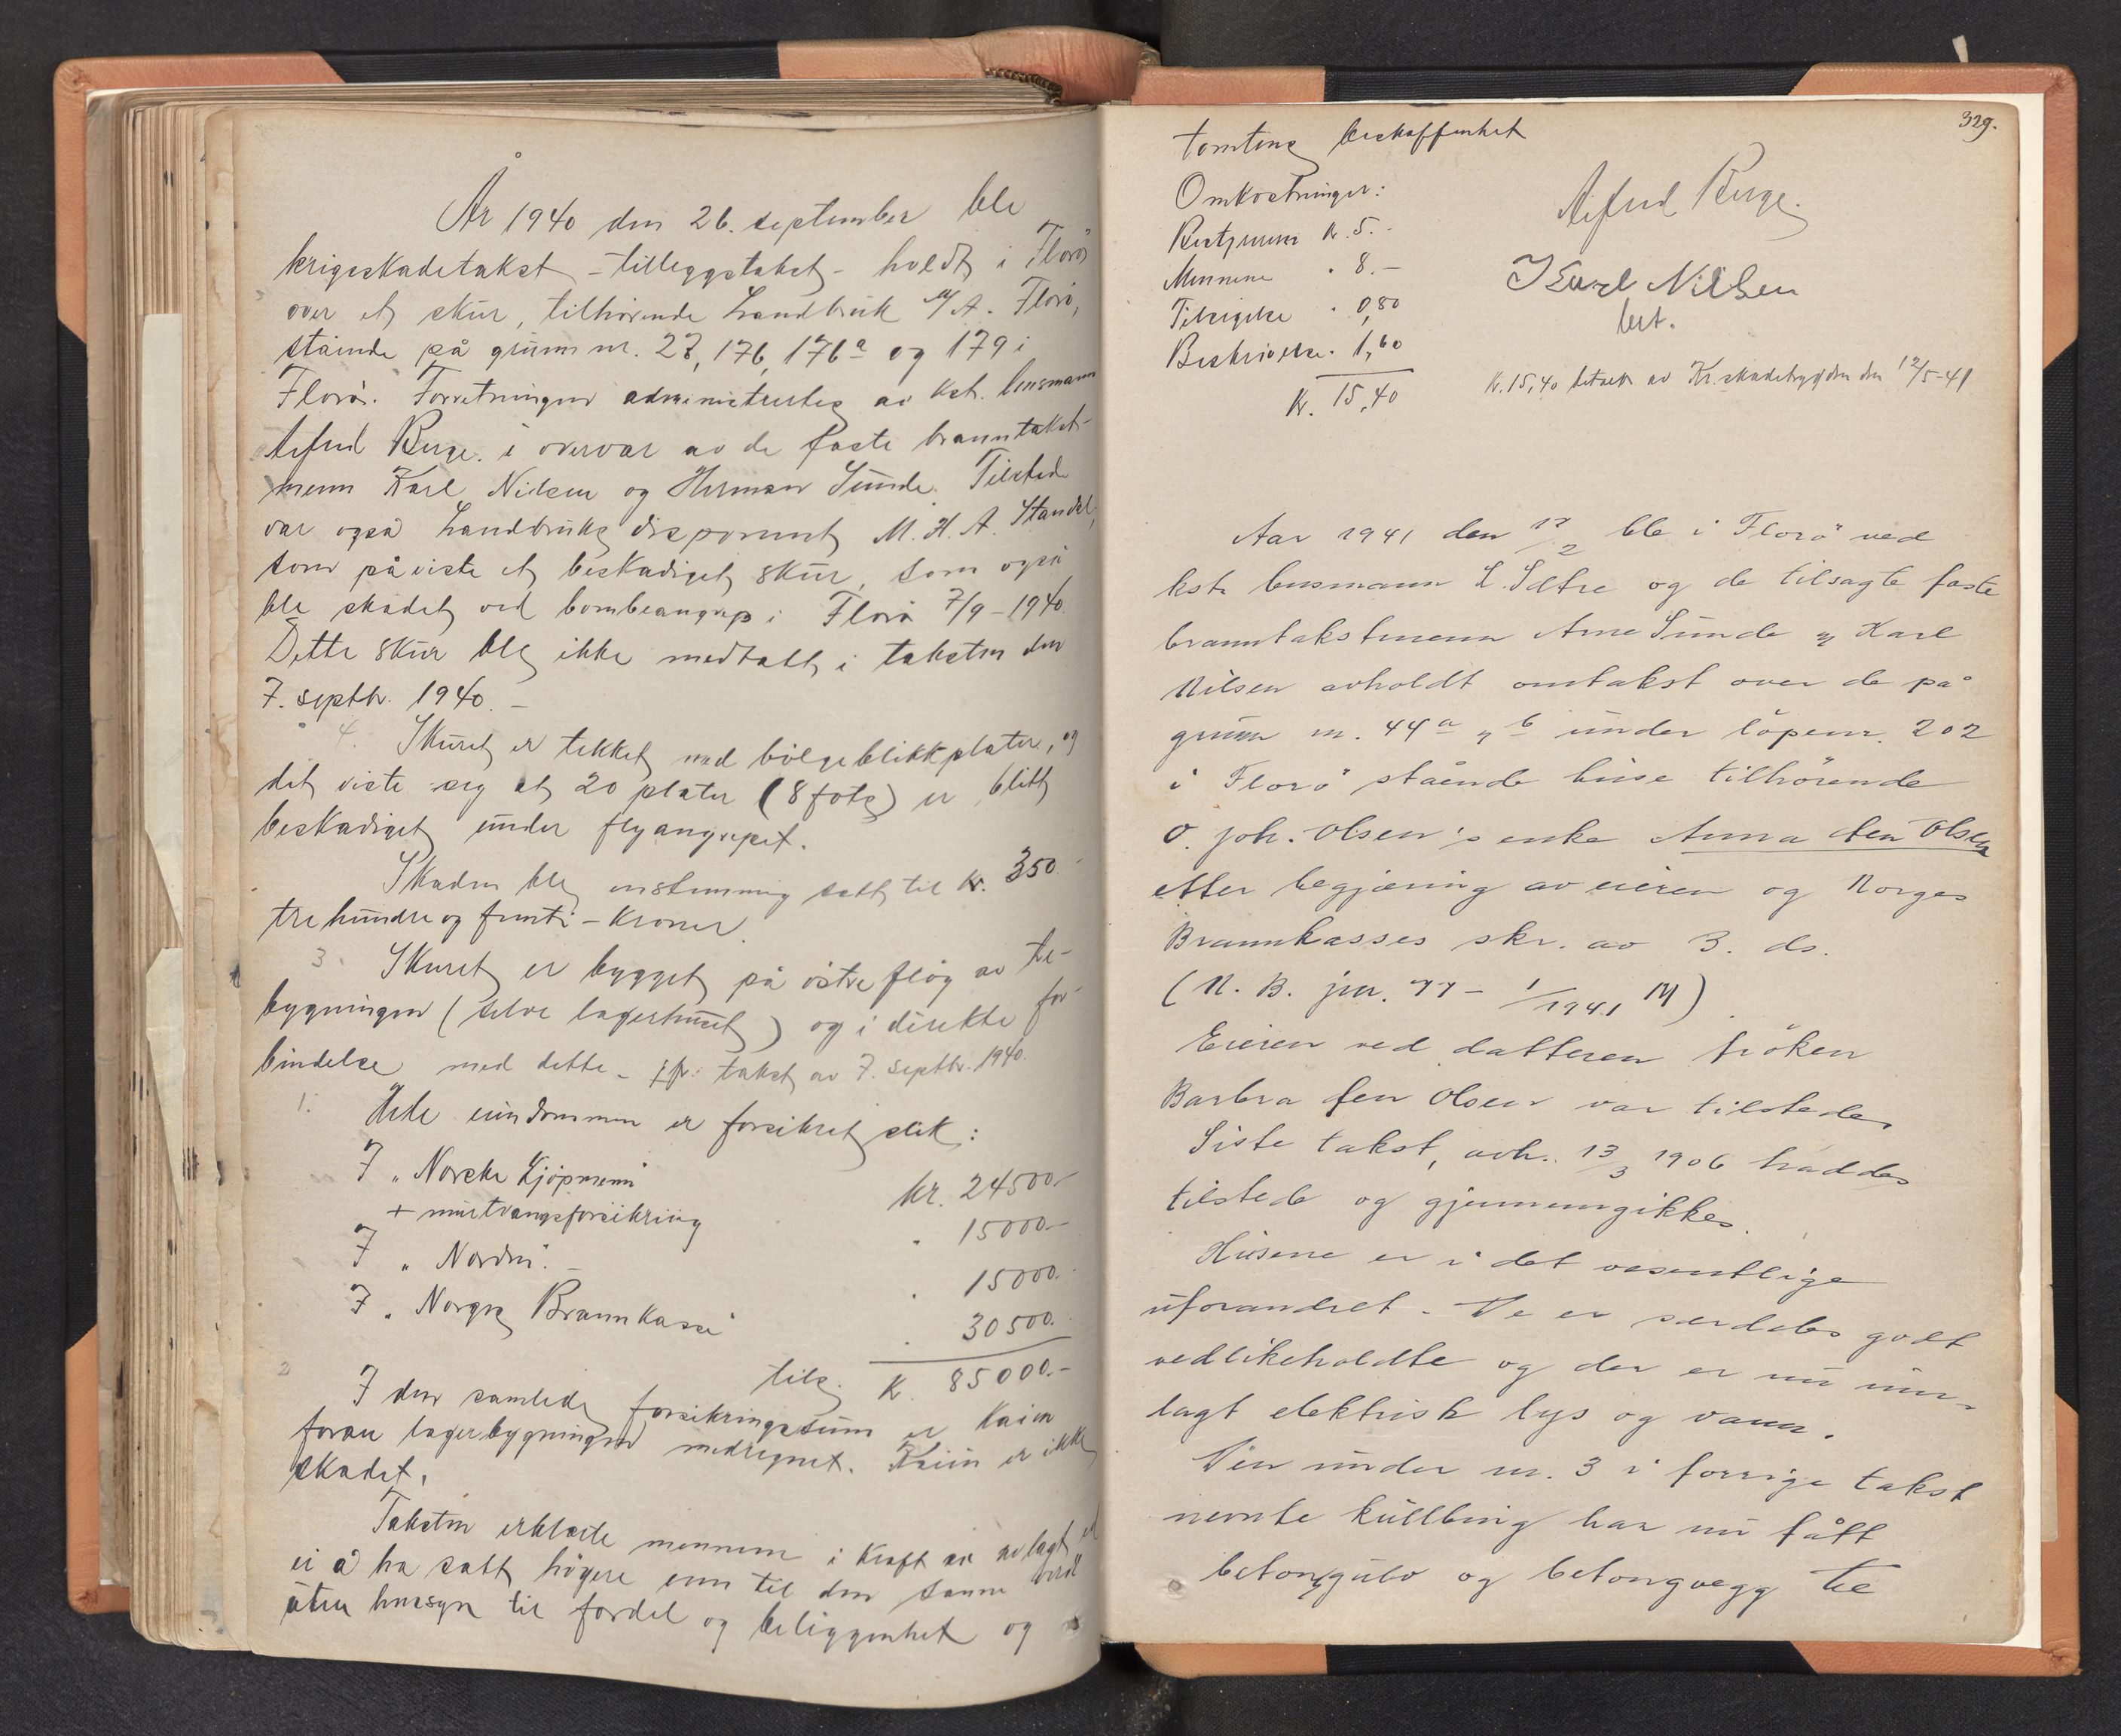 År 1940 den 26. september ble
krigsskadetakst - tilleggstakst - holdt i Florø
over et skur, tilhørende Landbruk A/A. Florø,
stående på grunn nr. 27, 176, 176a og 179 i
Florø. Forretningen administrertes av kst. lensmann
Alfred Berge. i overvær av de faste branntakst-
menn Karl Nilsen og Herman Sunde. Tilstede
var også Landbruks disponent M. H. A. Standal,
som påviste et beskadiget skur, som også
ble skadet ved bombeangrep i Florø 7/9-1940.
Dette skur ble ikke medtatt i taksten den
7. septbr. 1940. -
4. Skuret er tekket med bølgeblikkplater, og
det viste seg at 20 plater (8 fots) er blitt
beskadiget under flyangrepet.
Skaden ble enstemmig satt til kr. 350
tre hundre og femti - kroner.
3. Skuret er bygget på østre fløy av be-
bygningen (selve lagerhuset) og i direkte for-
bindelse med dette - jfr. takst av 7. septbr. 1940.
1. Hele eiendommen er forsikret slik:
I "Norske Kjøpmenn" kr. 24500-
+ mertvangsforsikring " 15000.-
I "Norden". - " 15000.-
I "Norges Brannkasse" " 30500.
tils. Kr. 85000.-
2 I den samlede forsikringssum er kaien
foran lagerbygningen medregnet. Kaien er ikke
skadet.
Taksten erklærte mennene i kraft av avlagt ed
ei å ha satt høgere enn til den sanne verdi
uten hensyn til fordel og beliggenhet og
329.
tomtens beskaffenhet
Omkostninger:
Bestyreren kr. 5.-
Mennene " 8.-
Tilsigelse " 0,80
Beskrivelse " 1,60
Kr. 15,40
Alfred Berge.
Karl Nilsen
bet.
Kr. 15,40 betalt av Kr.skadetrygden den 12/5-41
Aar 1941 den 17/2 ble i Florö ved
kst. lensmann L. Sætre og de tilsagte faste
branntakstmenn Arne Sunde og Karl
Nilsen avholdt omtakst over de på
grunn nr. 44a og b under löpenr. 202
i Florö stående huse tilhörende
O. Joh. Olsen's enke Anna Fen Olsen
etter begjæring av eieren og Norges
Brannkasses skr. av 3. ds.
(N. B. jnr. 77 - 1/1941 M)
Eieren ved datteren fröken
Barbra Fen Olsen var tilstede.
Siste takst, avh. 13/3 1906 haddes
tilstede og gjennemgikkes.
Husene er i det vesentlige
uforandret. De er særdeles godt
vedlikeholdte og der er nu inn-
lagt elektrisk lys og vann.
Den under nr. 3 i forrige takst
nevnte kullbing har nu fått
betonggulv og betongvegg til